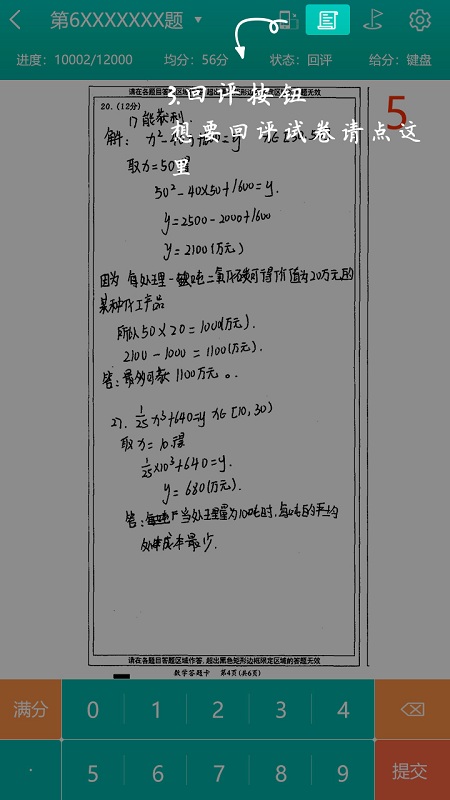 第6XXXXXXX题
进度：10002/12000 均分：56分 状态：回评 给分：键盘
请在各题目答题区域作答，超出黑色矩形边框限定区域的答题无效
3.回评按钮
想要回评试卷请点这里
5
20.（12分）
1) 能获利.
解：
取x=50得
50²-40×50+1600=y.
y=2500-2000+1600
y=2100(万元)
因为 每处理一吨二氧化碳可得价值为20万元的
某种化工产品
所以 50×20=1000(万元).
2100-1000=1100(万元).
答：最多可获 1100万元。
2). 1/25 x³+640=y x∈[10,30)
取x=10.得
1/25×10³+640=y.
y=680(万元).
答：当处理量为10吨时，每吨的平均
处理成本最少.
请在各题目答题区域作答，超出黑色矩形边框限定区域的答题无效
数学答题卡 第4页(共6页)
满分 0 1 2 3 4
· 5 6 7 8 9 提交